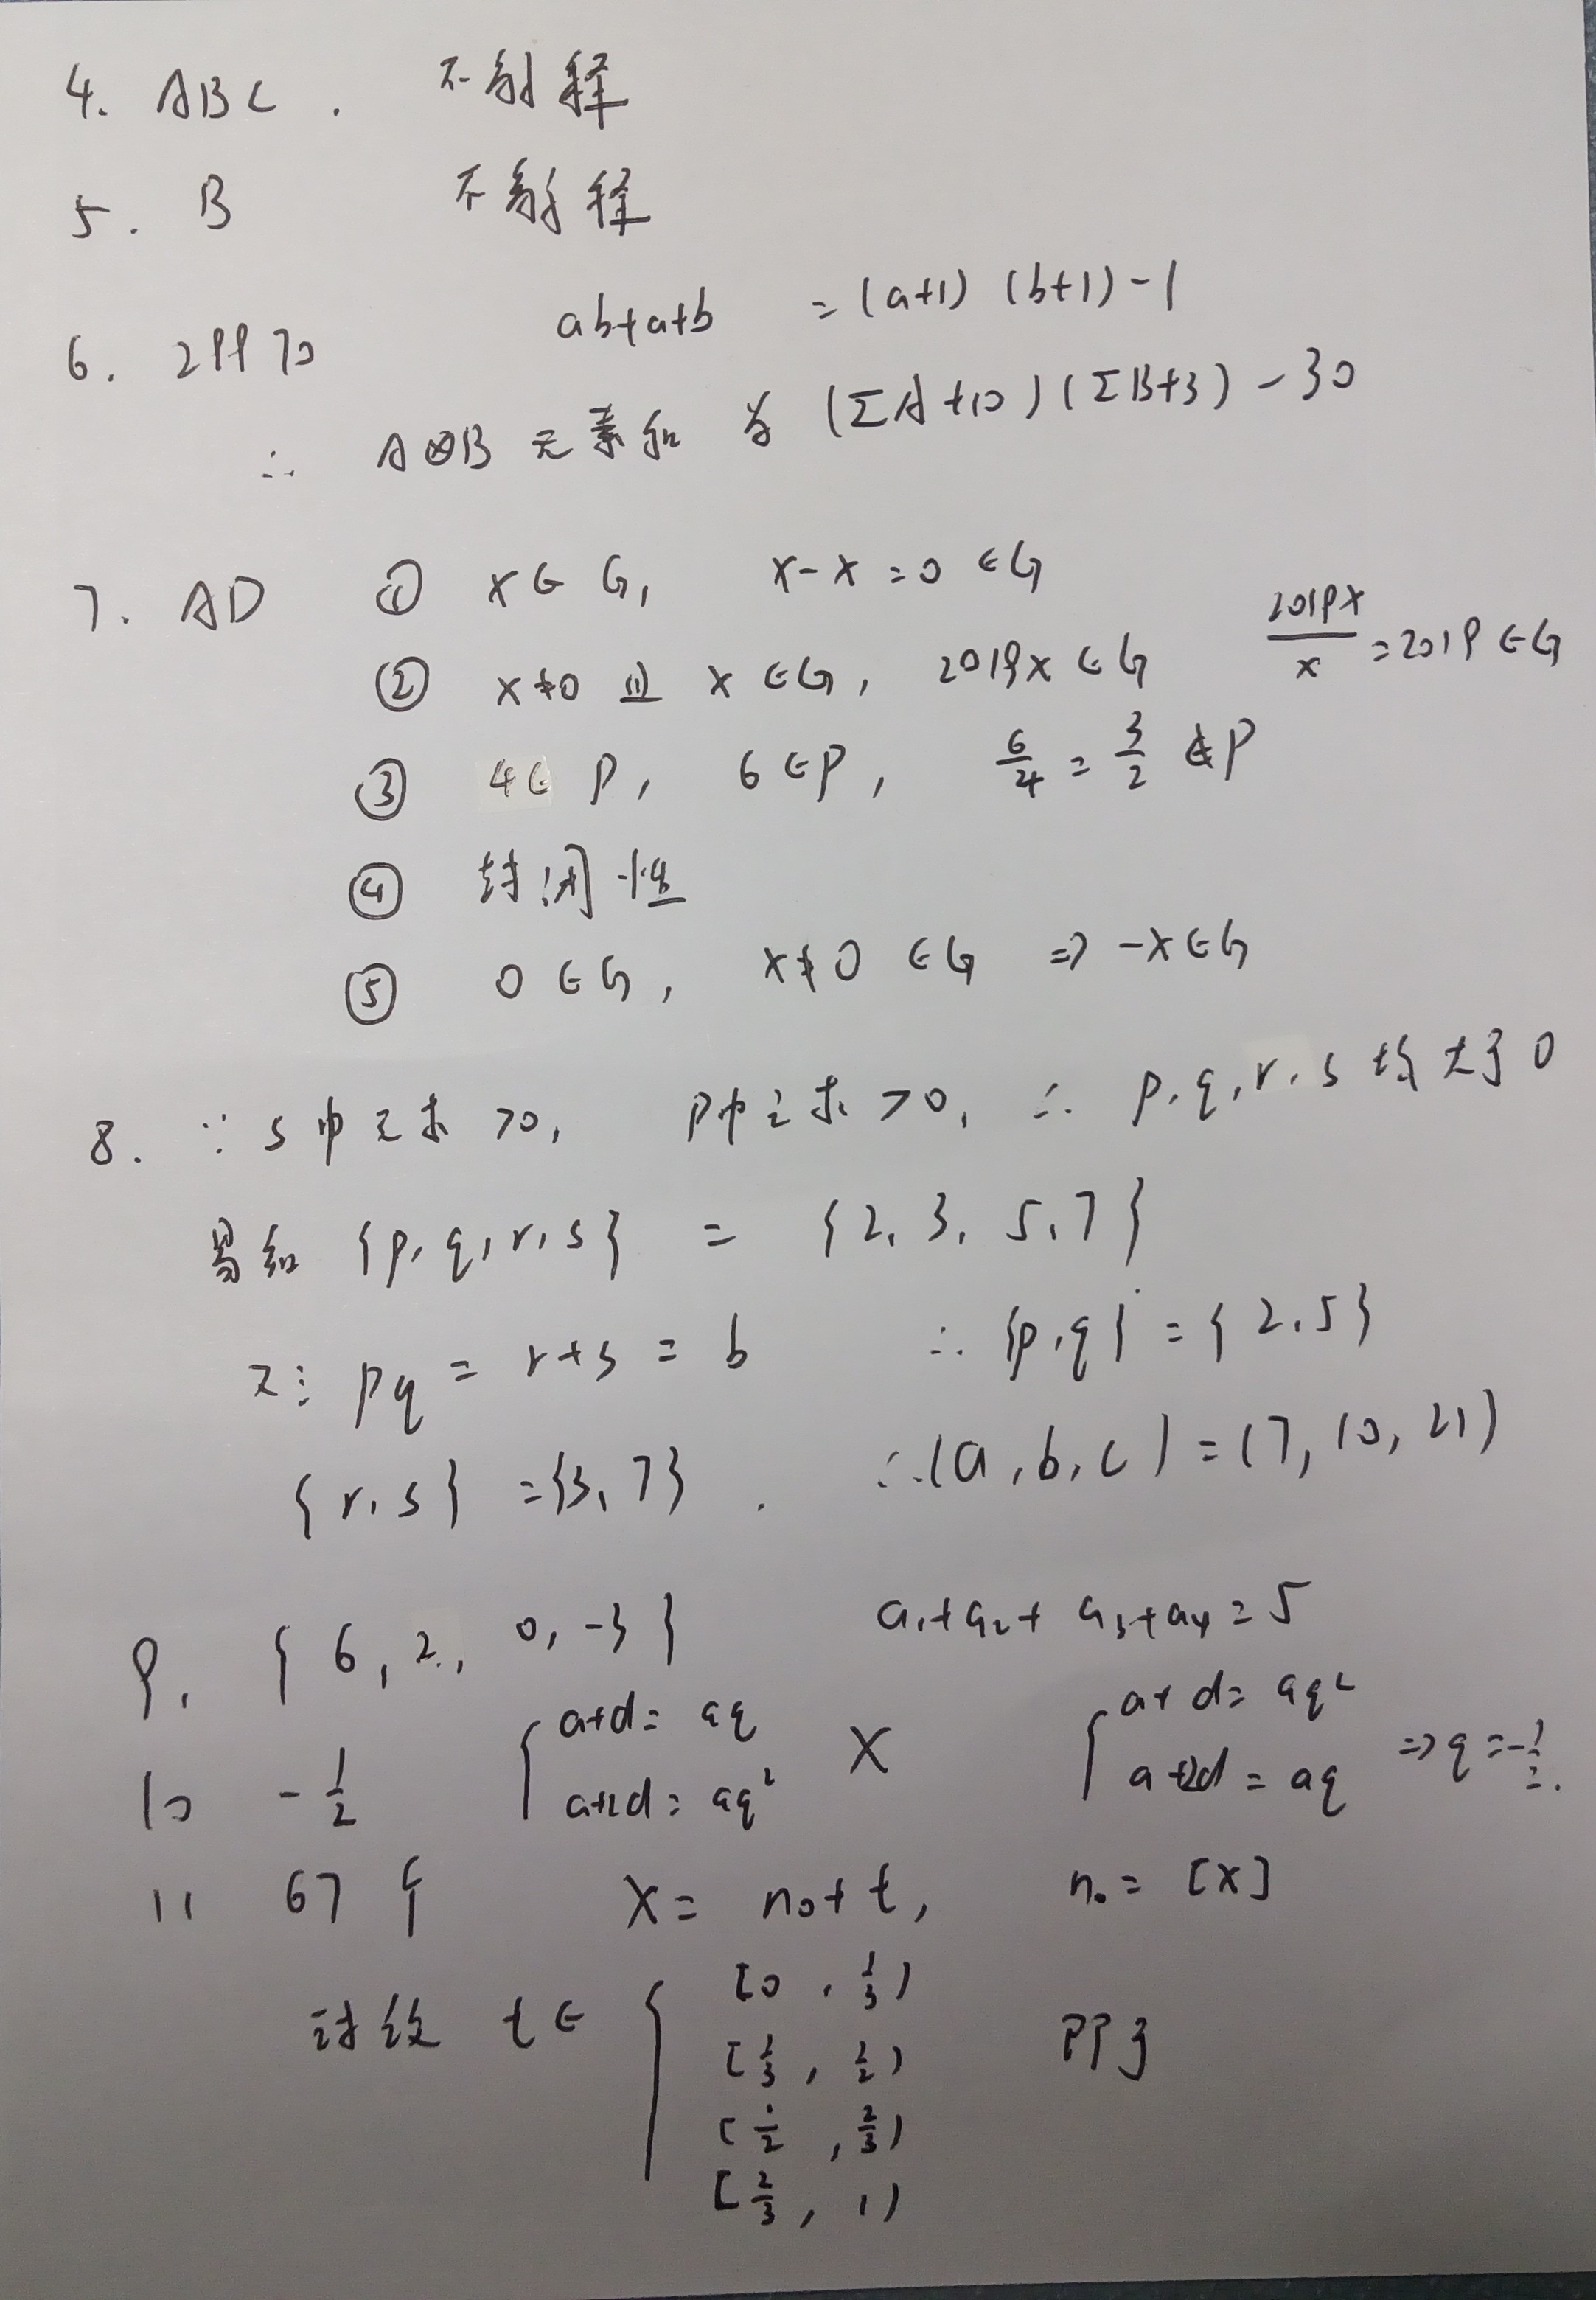 4. ABC. 不解释
5. B 不解释
6. 29970 ab+a+b = (a+1)(b+1)-1
∴ A⊗B 元素和为 (ΣA+10)(ΣB+3)-30
7. AD ① x∈G, x-x=0∈G
② x≠0且x∈G, 2019x∈G 2019x/x=2019∈G
③ 4∈P, 6∈P, 6/4=3/2∉P
④ 封闭性
⑤ 0∈G, x≠0∈G ⇒ -x∈G
8. ∵ S中元素>0, P中元素>0, ∴ p,q,r,s均大于0
易知 {p,q,r,s} = {2,3,5,7}
又∵ pq=r+s=b ∴ {p,q}={2,5}
{r,s}={3,7}. ∴(a,b,c)=(7,10,21)
9. {6,2,0,-3} a₁+a₂+a₃+a₄=5
10 -1/2 { a+d=aq a+2d=aq² × { a+d=aq² a+2d=aq ⇒q=-1/2.
11 67个 x=n₀+t, n₀=[x]
讨论 t∈ { [0,1/3)
[1/3,1/2)
[1/2,2/3)
[2/3,1) 即可